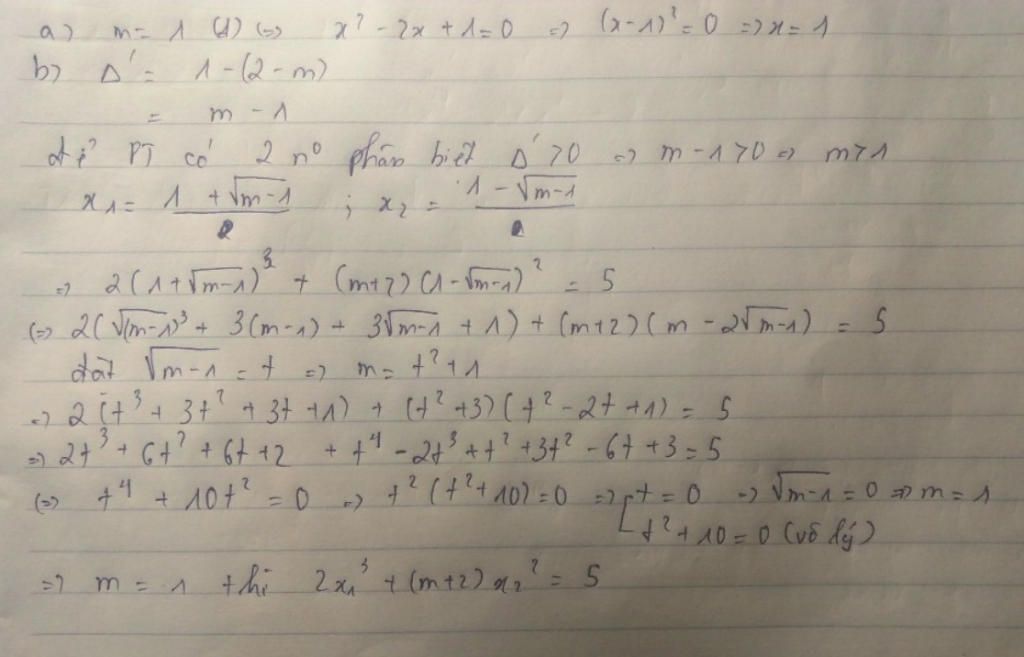 a) m = 1 (1) (=> x² - 2x + 1 = 0 => (x-1)² = 0 => x = 1
b) Δ' = 1 - (2 - m)
= m - 1
để PT có 2 n⁰ phân biệt Δ' > 0 => m - 1 > 0 => m > 1
x₁ = (1 + √(m-1))/2 ; x₂ = (1 - √(m-1))/2
=> 2(1 + √(m-1))³ + (m+2)(1 - √(m-1))² = 5
(=> 2(√(m-1)³ + 3(m-1) + 3√(m-1) + 1) + (m+2)(m - 2√(m-1)) = 5
đặt √(m-1) = t => m = t² + 1
=> 2(t³ + 3t² + 3t + 1) + (t² + 3)(t² - 2t + 1) = 5
=> 2t³ + 6t² + 6t + 2 + t⁴ - 2t³ + t² + 3t² - 6t + 3 = 5
(=> t⁴ + 10t² = 0 => t²(t² + 10) = 0 => [ t = 0 => √(m-1) = 0 => m = 1
t² + 10 = 0 (vô lý)
=> m = 1 thì 2x₁³ + (m+2)x₂² = 5